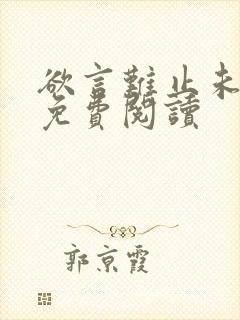 欲言難止未
免費閱讀
郭京霞